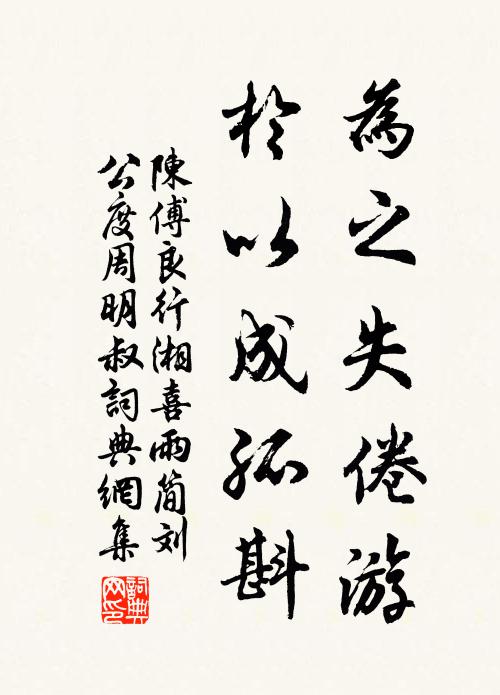 為之失倦游
於以成孤斟
陳傅良行湘喜雨簡刘
公度周明叔詞典網集
詞典网印